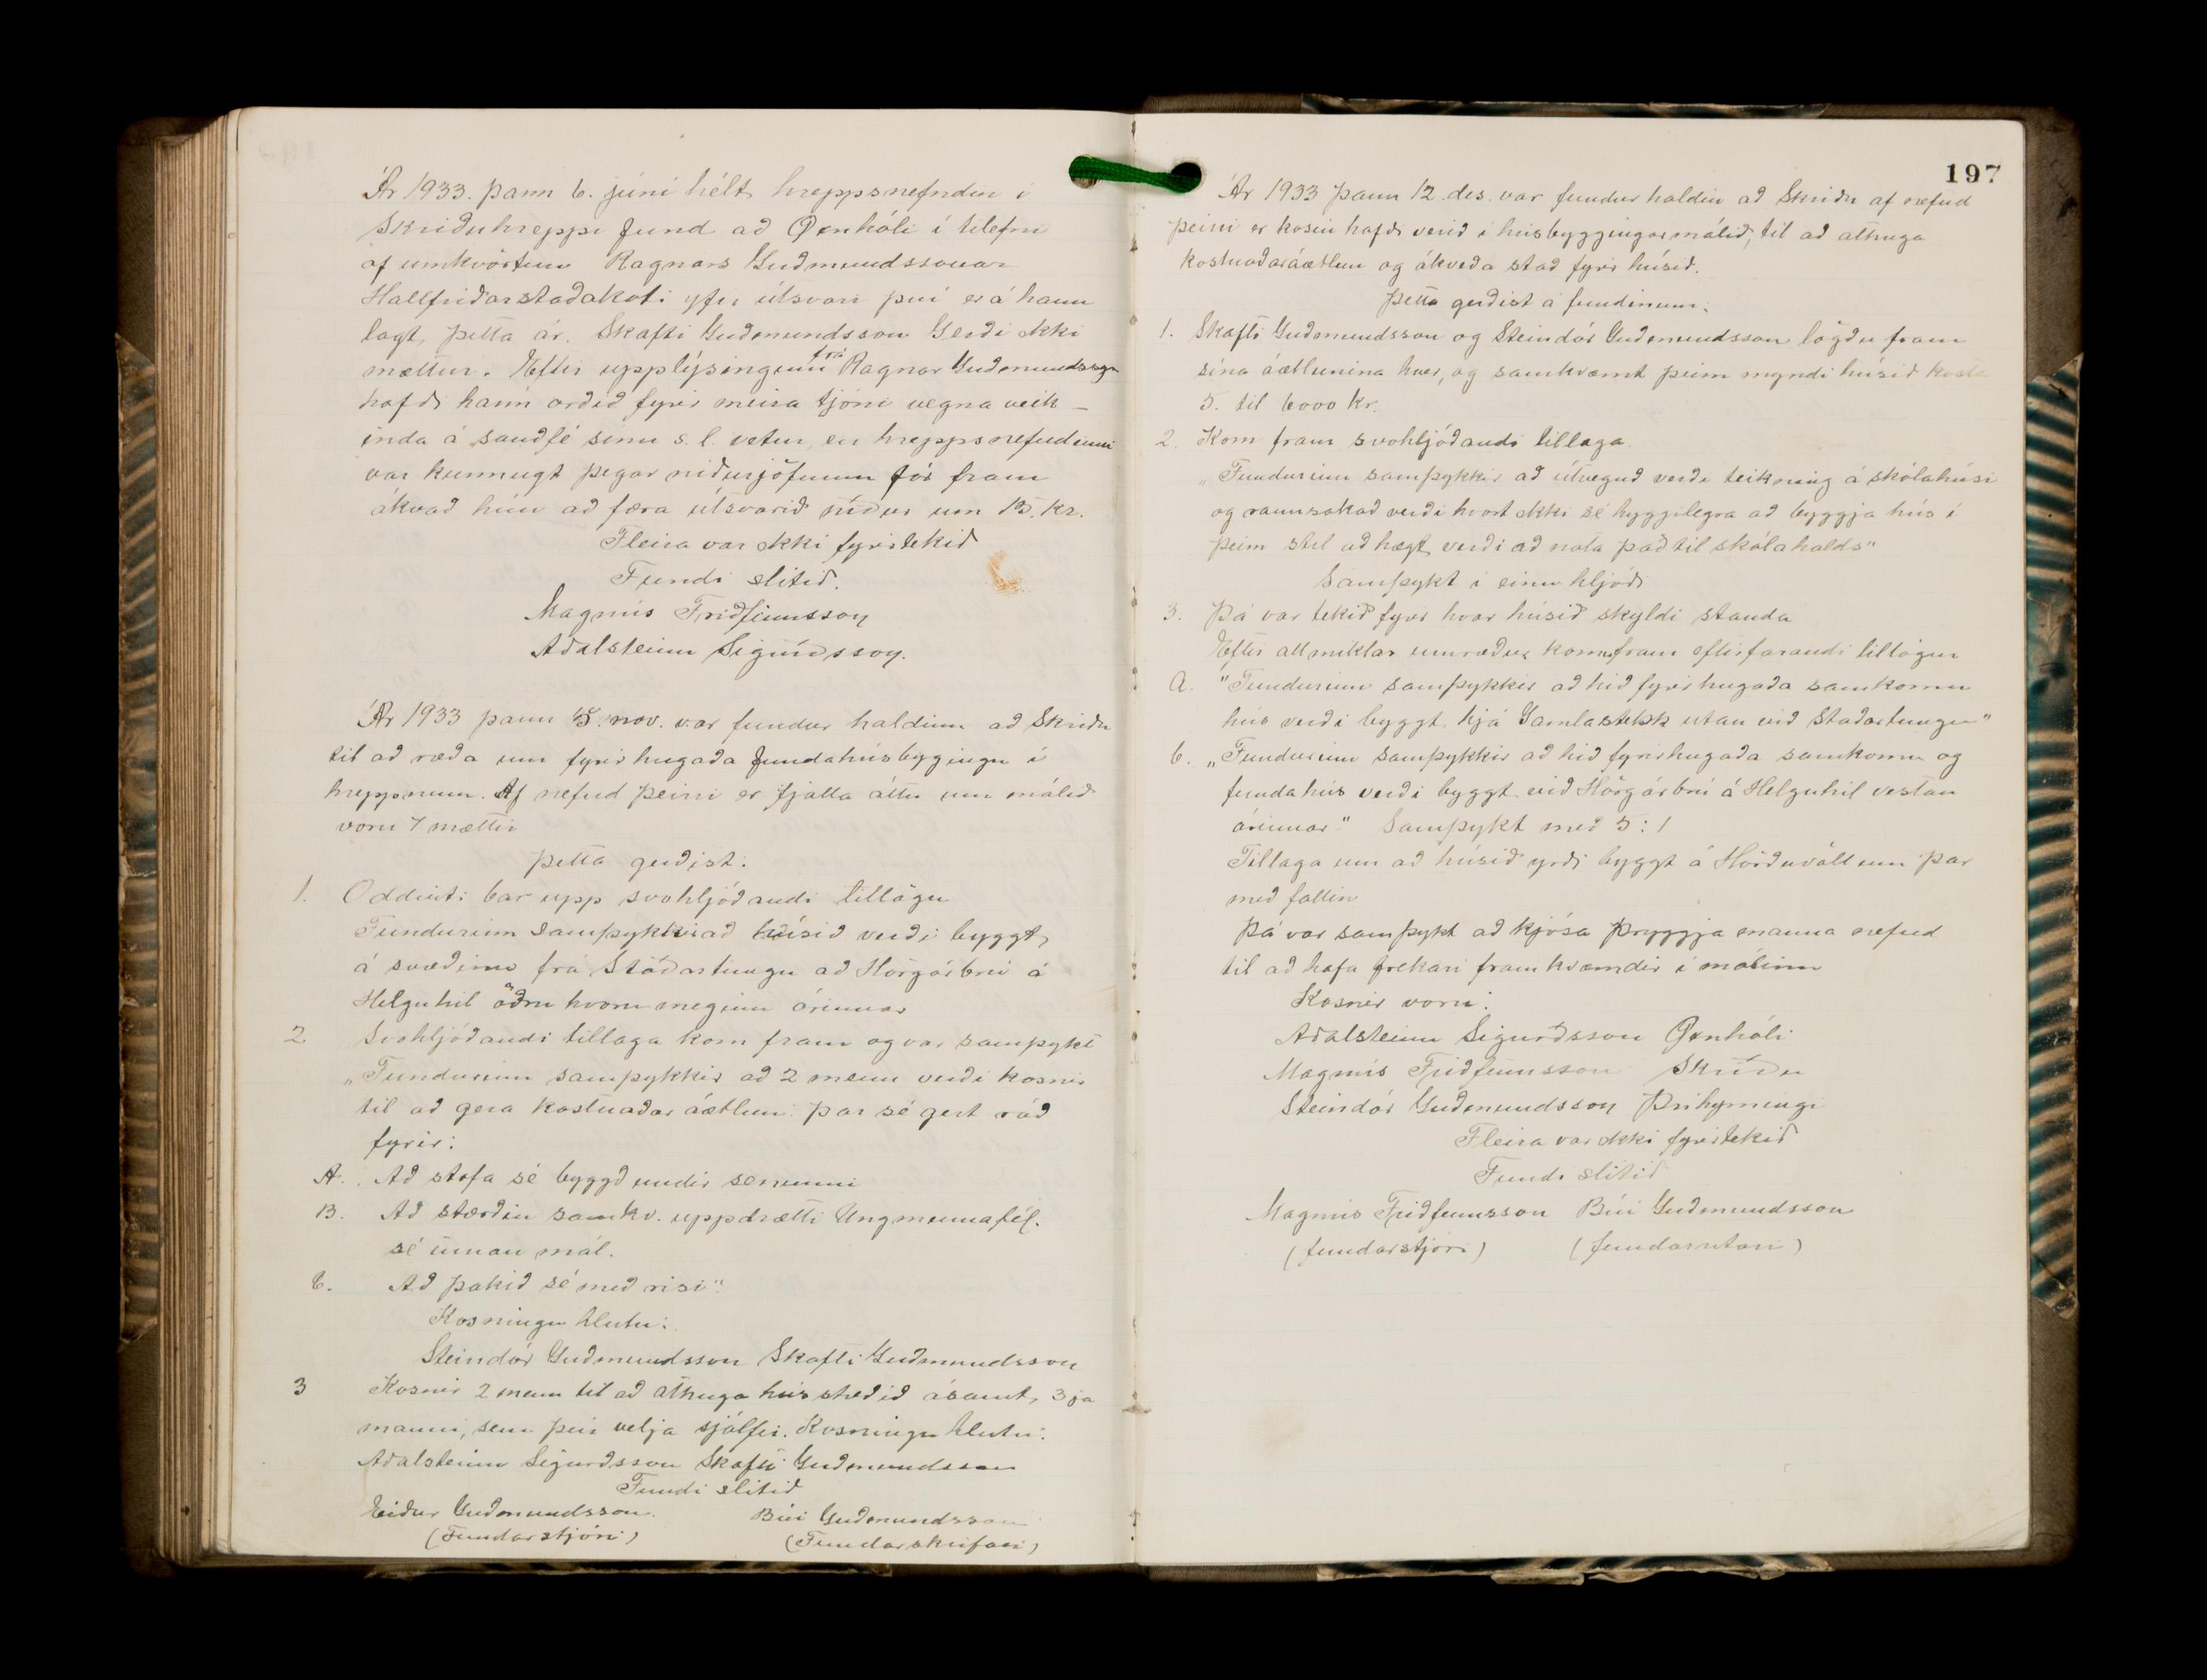 Ár 1933. þann 6. júní hélt hreppsnefndin í
Skriðuhreppi fund að Öxnhóli í tilefni
af umkvörtun Ragnars Guðmundssonar
Hallfríðarstaðakoti yfir útsvari því er á hann
lagt þetta ár. Skafti Guðmundsson Gerði ekki
mættur. Eftir upplýsingum frá Ragnar Guðmundssyn
hafði hann orðið fyrir meira tjóni vegna veik-
inda á sauðfé sínu s.l. vetur, en hreppsnefndinni
var kunnugt þegar niðurjöfnun fór fram
ákvað hún að færa útsvarið niður um 15. kr.
Fleira var ekki fyrirtekið
Fundi slitið.
Magnús Friðfinnsson
Aðalsteinn Sigurðsson.
Ár 1933 þann 15. nov. var fundur haldinn að Skriðu
til að ræða um fyrirhugaða fundahúsbyggingu í
hreppnum. Af nefnd þeirri er fjalla átti um málið
voru 7 mættir
Þetta gerðist:
1. Oddviti bar upp svohljóðandi tillögu
Fundurinn samþykkir að húsið verði byggt,
á svæðinu frá Staðartungu að Hörgárbrú á
Helguhil öðru hvoru meginn árinnar
2. Svohljóðandi tillaga kom fram og var samþykt
„Fundurinn samþykkir að 2 menn verði kosnir
til að gera kostnaðaráætlun. Þar sé gert ráð
fyrir:
A. Að stofa sé byggð undir senunni
B. Að stærðin samkv. uppdrætti Ungmennafél.
sé innan mál.
C. Að þakið sé með risi".
Kosningu hlutu:
Steindór Guðmundsson Skafti Guðmundsson
3 Kosnir 2 menn til að athuga hússtæðið ásamt, 3ja
manni, sem þeir velja sjálfir. Kosningu hlutu:
Aðalsteinn Sigurðsson Skafti Guðmundsson
Fundi slitið
Eiður Guðmundsson. Búi Guðmundsson
(Fundarstjóri) (Fundarskrifari)
197
Ár 1933 þann 12. des. var fundur haldin að Skriðu af nefnd
þeirri er kosin hafði verið í húsbyggingarmálið, til að athuga
kostnaðaráætlun og ákveða stað fyrir húsið.
Þetta gerðist á fundinum:
1. Skafti Guðmundsson og Steindór Guðmundsson lögðu fram
sína áætlunina hver, og samkvæmt þeim myndi húsið kosta
5. til 6000 kr.
2. Kom fram svohljóðandi tillaga
„Fundurinn samþykkir að útveguð verði teikning á skólahúsi
og rannsakað verði hvort ekki sé hyggilegra að byggja hús í
þeim stíl að hægt verði að nota það til skólahalds"
Samþykt í einu hljóði
3. Þá var tekið fyrir hvar húsið skyldi standa
Eftir allmiklar umræður komu fram eftirfarandi tillögur
a. "Fundurinn samþykkir að hið fyrirhugaða samkomu
hús verði byggt hjá Gamlastekk utan við Staðartungu"
b. „Fundurinn samþykkir að hið fyrirhugaða samkomu og
fundahús verði byggt við Hörgárbrú á Helguhil vestan
árinnar" Samþykt með 5:1
Tillaga um að húsið yrði byggt á Hörðuvöllum þar
með fallin
Þá var samþykt að kjósa þryggja manna nefnd
til að hafa frekari framkvæmdir í málinu
Kosnir voru:
Aðalsteinn Sigurðsson Öxnhóli
Magnús Friðfinnsson Skriðu
Steindór Guðmundsson Þríhyrningi
Fleira var ekki fyrirtekið
Fundi slitið
Magnús Friðfinnsson Búi Guðmundsson
(fundarstjóri) (fundarritari)